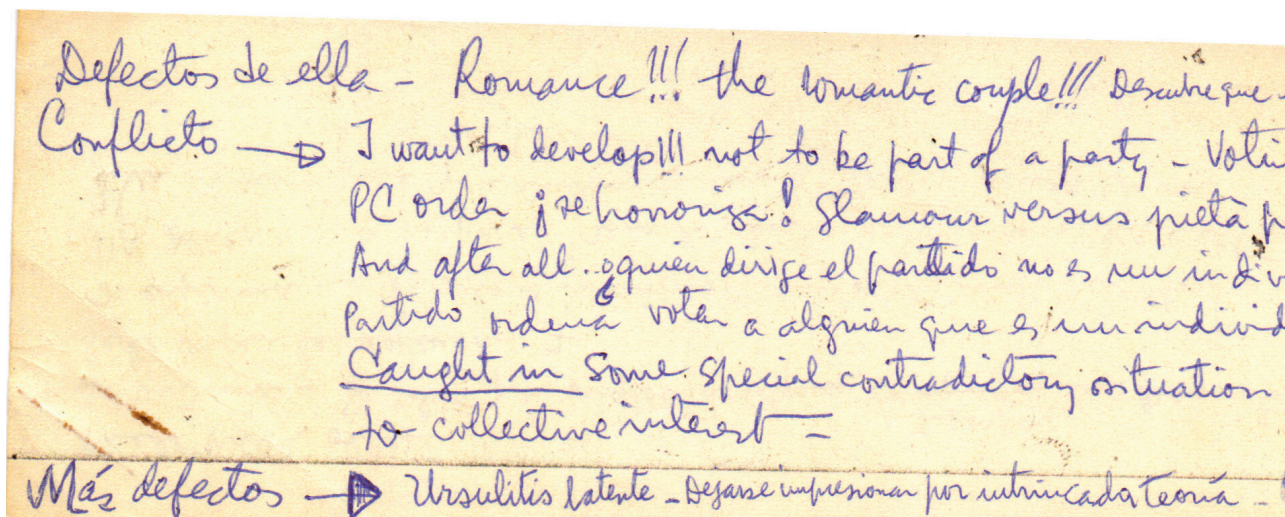 Defectos de ella - Romance!!! the romantic couple!!! Descubre que -
Conflicto → I want to develop!!! not to be part of a party - Voti
PC order ¡se horroriza! Glamour versus pietà p
And after all. ¿quien dirige el partido no es un indiv
Partido ordena votar a alguien que es un individ
Caught in some special contradictory situation
to collective interest -
Más defectos → Ursulitis latente - Dejarse impresionar por intrincada teoría -